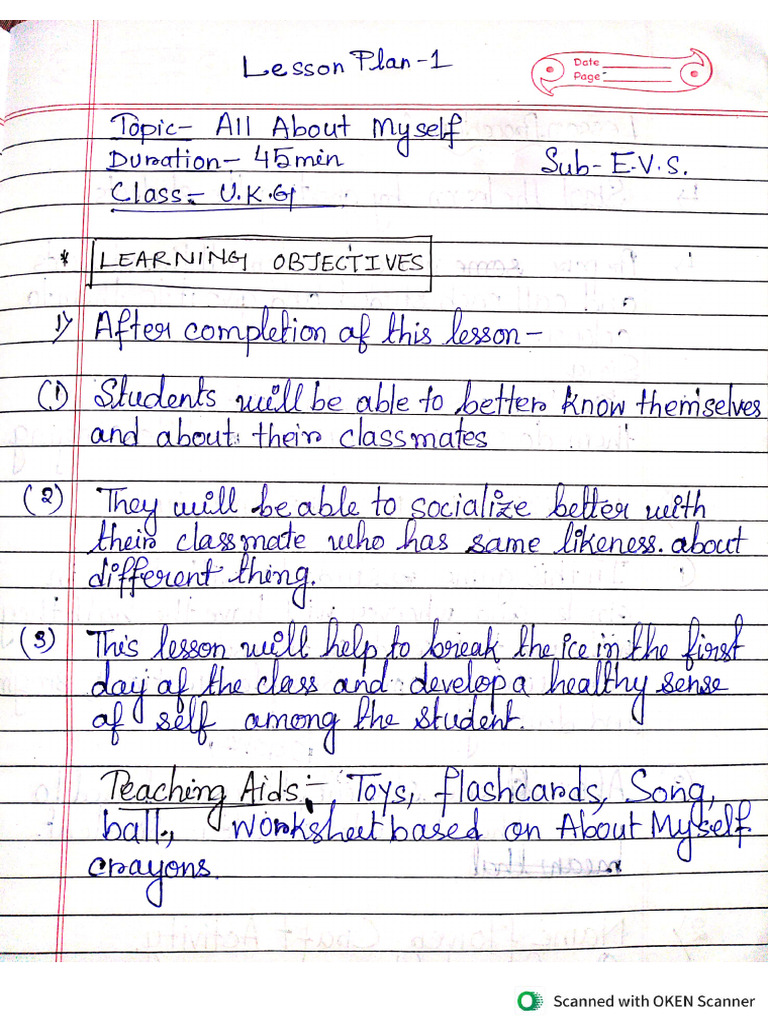 Lesson Plan-1
Date
Page
Topic- All About Myself
Duration- 45min Sub- E.V.S.
Class- U.K.G
* LEARNING OBJECTIVES
1) After completion of this lesson-
(1) Students will be able to better know themselves
and about their classmates
(2) They will be able to socialize better with
their classmate who has same likeness. about
different thing.
(3) This lesson will help to break the ice in the first
day of the class and develop a healthy sense
of self among the student.
Teaching Aids:- Toys, flashcards, Song,
ball, Worksheet based on About Myself
crayons.
Scanned with OKEN Scanner